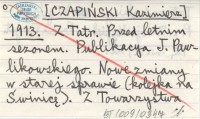 [CZAPIŃSKI Kazimierz]
1913. Z Tatr. Przed letnim
sezonem. Publikacya J. Paw-
likowskiego. Nowe zmiany
w starej sprawie (kolejka na
Świnicę). Z Towarzystwa